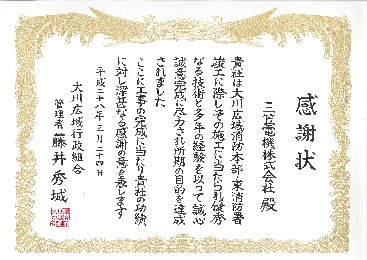 感謝状
三笠電機株式会社 殿
貴社は大川広域消防本部・東消防署
竣工に際しその施工に当たられ優秀
なる技術と多年の経験を以って誠心
誠意完成に尽力され所期の目的を達成
されました
ここに工事の完成に当たり貴社の功績
に対し深甚なる感謝の意を表します
平成二十八年三月二十四日
大川広域行政組合
管理者 藤井秀城